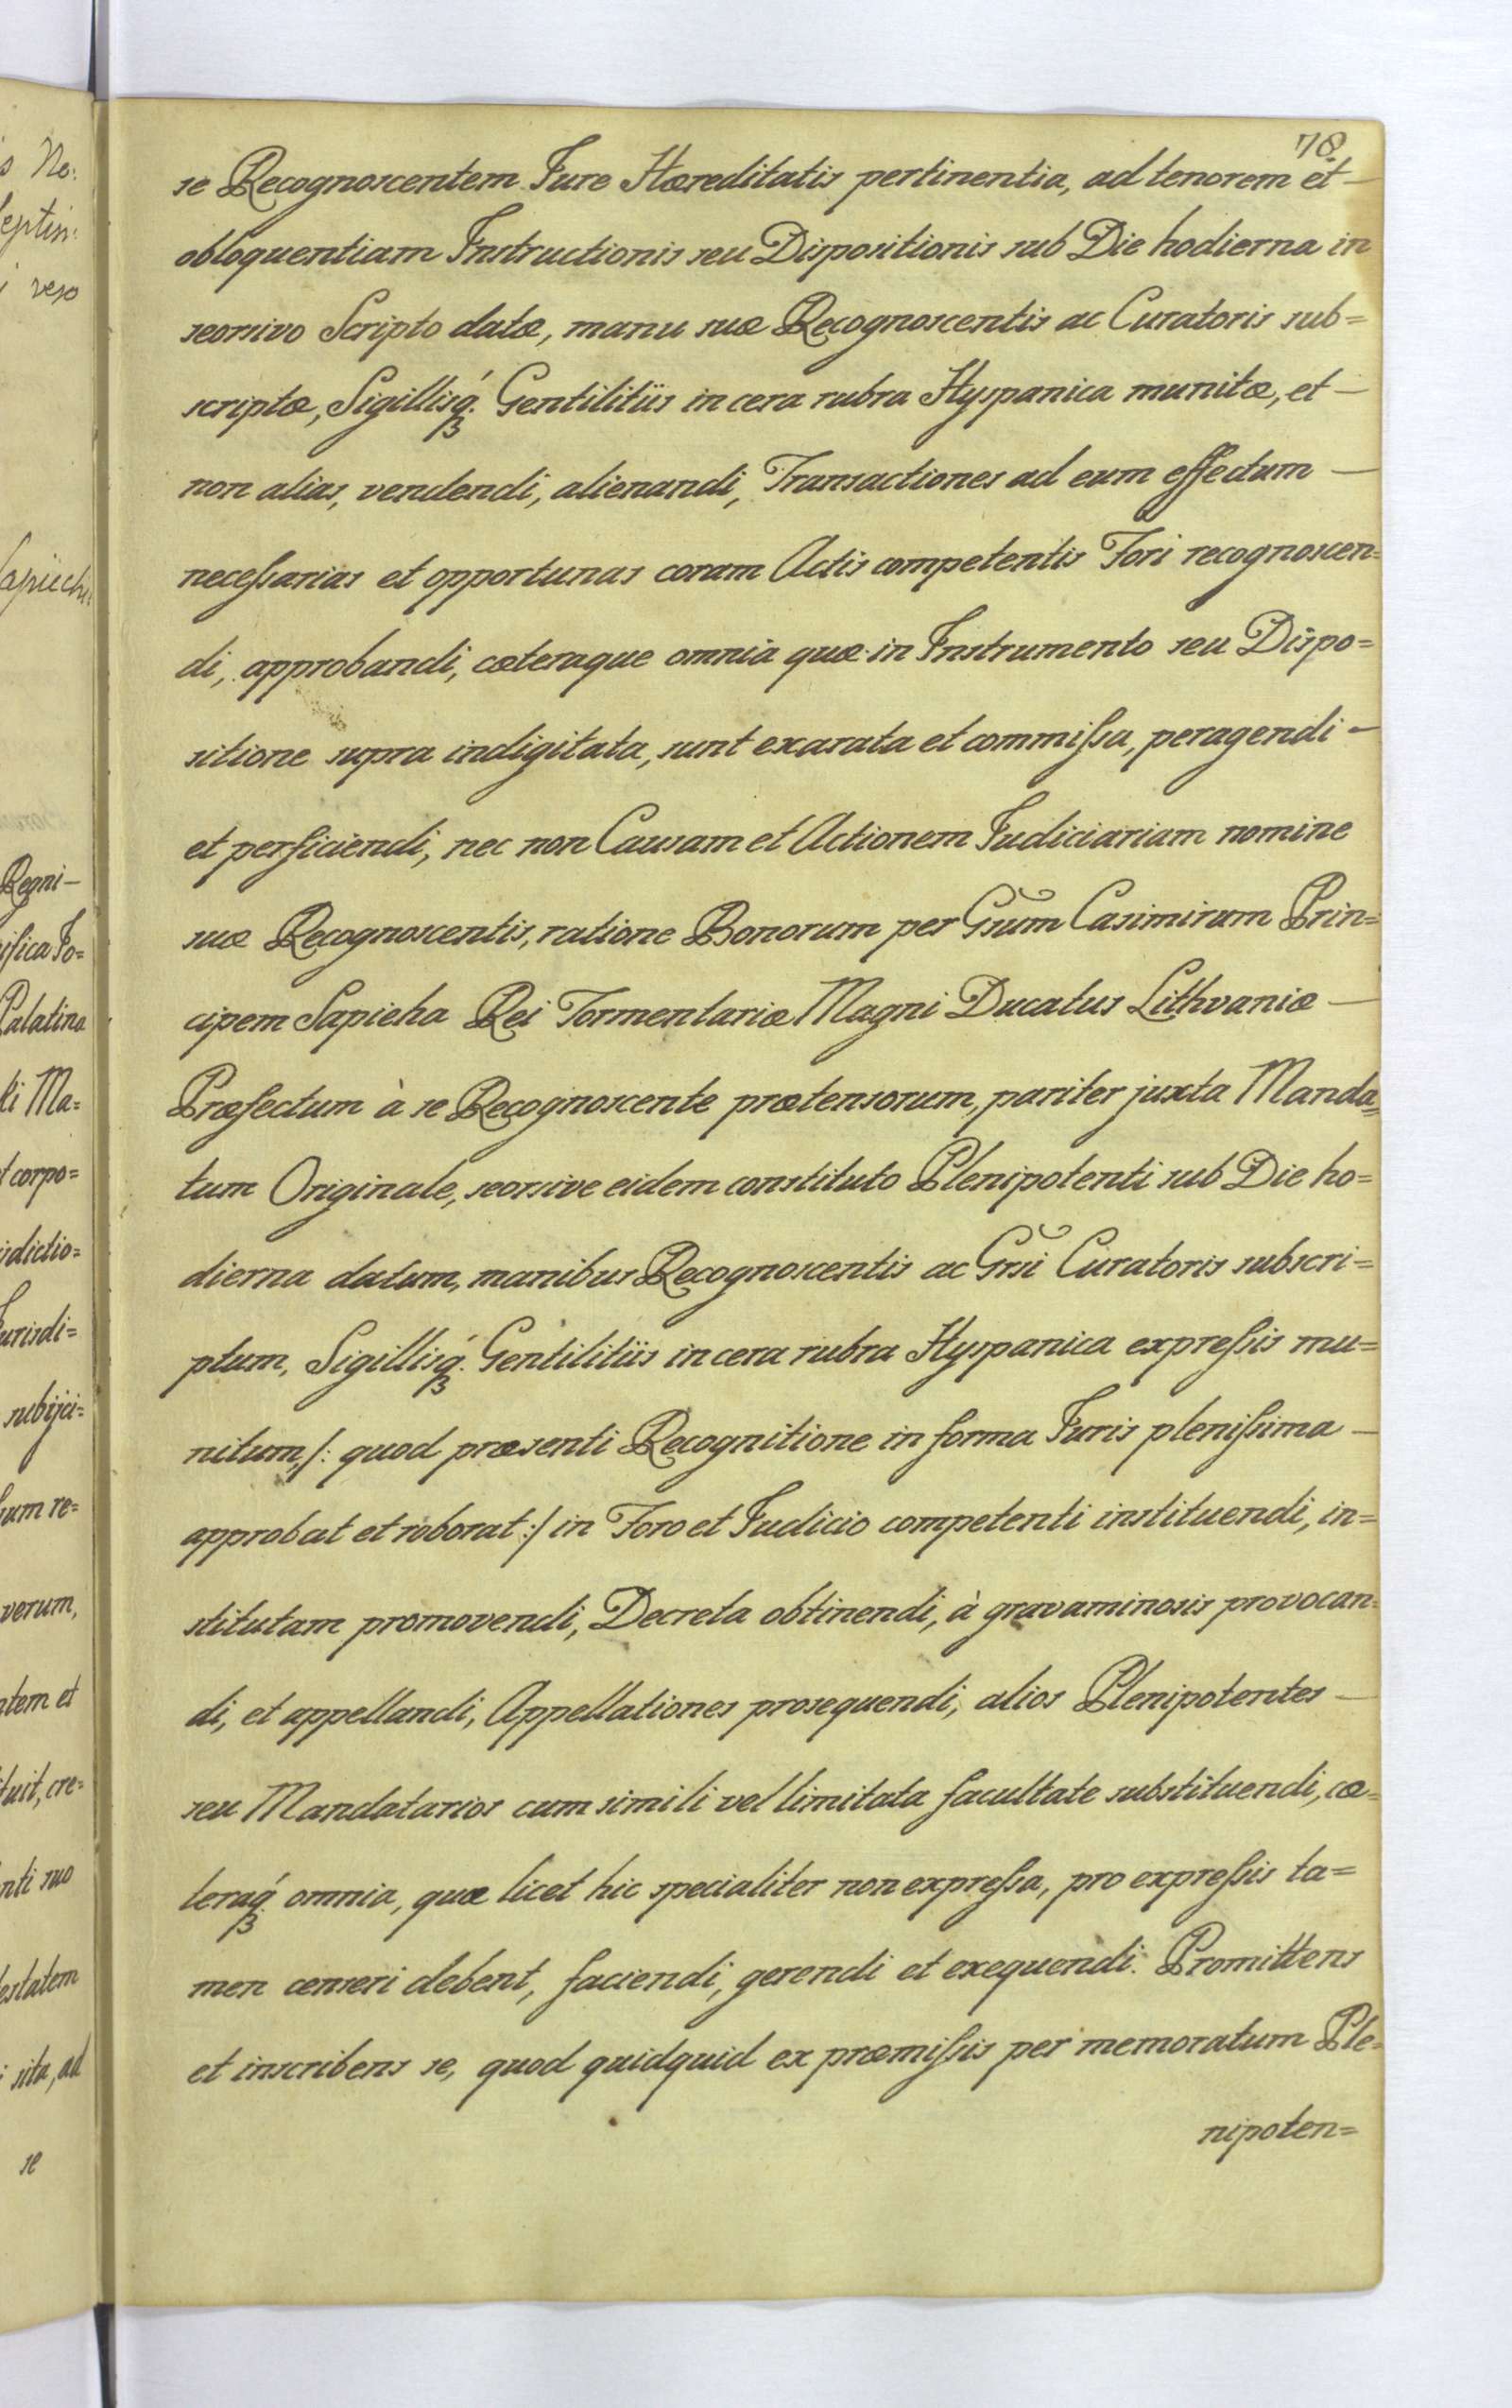 78
se Recognoscentem Jure Hæreditatis pertinentia, ad tenorem et —
obloquentiam Instructionis seu Dispositionis sub Die hodierna in
seorsivo Scripto datæ, manu suæ Recognoscentis ac Curatoris sub=
scriptæ, Sigillisq́ꝫ Gentilitiis in cera rubra Hyspanica munitæ, et —
non alias, vendendi, alienandi, Transactiones ad eum effectum —
necessarias et opportunas coram Actis competentis Fori recognoscen=
di, approbandi, cæteraque omnia quæ in Instrumento seu Dispo=
sitione supra indigitata, sunt exarata et commissa, peragendi —
et perficiendi, nec non Causam et Actionem Judiciariam nomine
suæ Recognoscentis, ratione Bonorum per Gsum Casimirum Prin=
cipem Sapieha Rei Tormentariæ Magni Ducatus Lithvaniæ —
Præfectum à se Recognoscente prætensorum, pariter juxta Manda=
tum Originale, seorsive eidem constituto Plenipotenti sub Die ho=
dierna datum, manibus Recognoscentis ac Grsi Curatoris subscri=
ptum, Sigillisq́ꝫ Gentilitiis in cera rubra Hyspanica expressis mu=
nitum, /: quod præsenti Recognitione in forma Juris plenissima —
approbat et roborat :/ in Foro et Judicio competenti instituendi, in=
stitutam promovendi, Decreta obtinendi, à gravaminosis provocan=
di, et appellandi, Appellationes prosequendi, alios Plenipotentes —
seu Mandatarios cum simili vel limitata facultate substituendi, cæ=
teraq́ꝫ omnia, quæ licet hic specialiter non expressa, pro expressis ta=
men censeri debent, faciendi, gerendi et exequendi. Promittens
et inscribens se, quod quidquid ex præmissis per memoratum Ple=
nipoten=